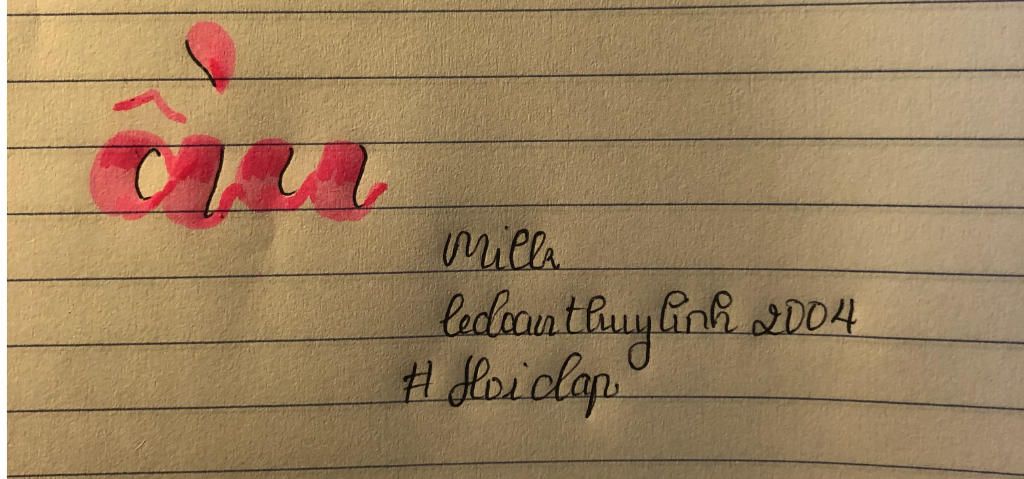 ầu
Milk
ledoanthuylinh 2004
# Hoidap